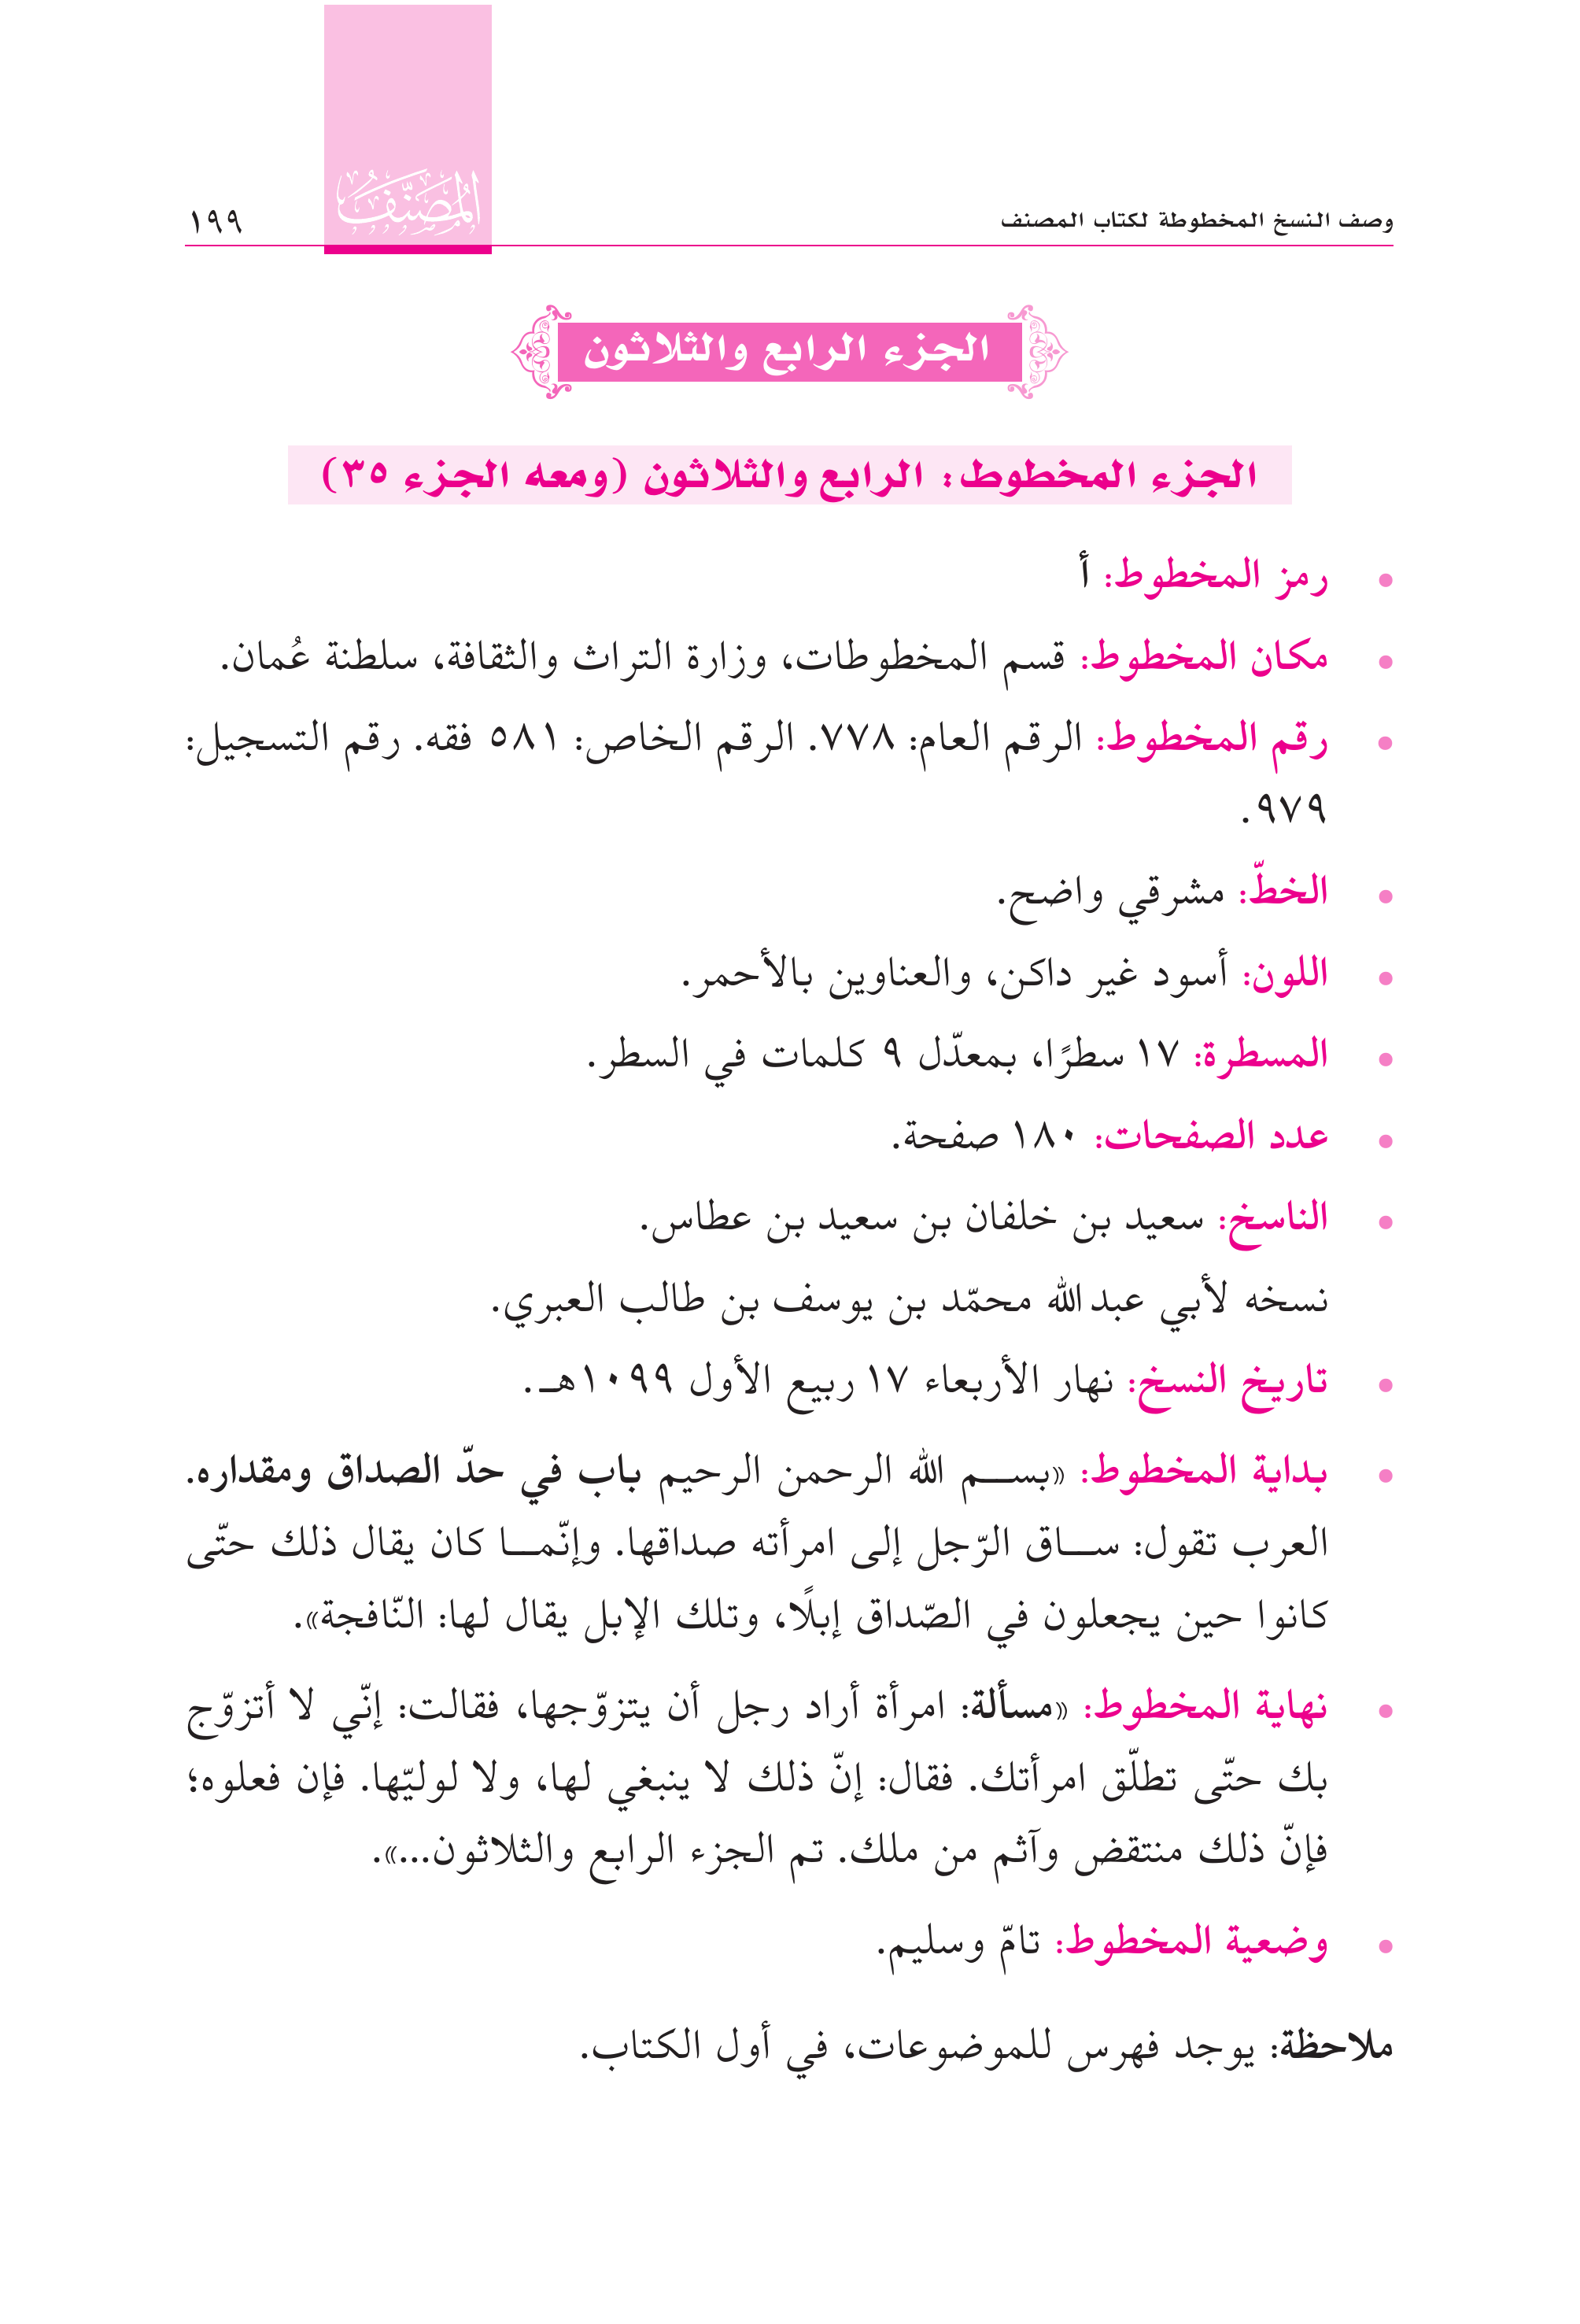 وصف النسخ المخطوطة لكتاب المصنف
المُصَنَّف
١٩٩
الجزء الرابع والثلاثون
الجزء المخطوط: الرابع والثلاثون (ومعه الجزء ٣٥)
• رمز المخطوط: أ
• مكان المخطوط: قسم المخطوطات، وزارة التراث والثقافة، سلطنة عُمان.
• رقم المخطوط: الرقم العام: ٧٧٨. الرقم الخاص: ٥٨١ فقه. رقم التسجيل:
٩٧٩.
• الخطّ: مشرقي واضح.
• اللون: أسود غير داكن، والعناوين بالأحمر.
• المسطرة: ١٧ سطرًا، بمعدّل ٩ كلمات في السطر.
• عدد الصفحات: ١٨٠ صفحة.
• الناسخ: سعيد بن خلفان بن سعيد بن عطاس.
نسخه لأبي عبدالله محمّد بن يوسف بن طالب العبري.
• تاريخ النسخ: نهار الأربعاء ١٧ ربيع الأول ١٠٩٩هـ.
• بداية المخطوط: «بســم الله الرحمن الرحيم باب في حدّ الصداق ومقداره.
العرب تقول: ســاق الرّجل إلى امرأته صداقها. وإنّمــا كان يقال ذلك حتّى
كانوا حين يجعلون في الصّداق إبلًا، وتلك الإبل يقال لها: النّافجة».
• نهاية المخطوط: «مسألة: امرأة أراد رجل أن يتزوّجها، فقالت: إنّي لا أتزوّج
بك حتّى تطلّق امرأتك. فقال: إنّ ذلك لا ينبغي لها، ولا لوليّها. فإن فعلوه؛
فإنّ ذلك منتقض وآثم من ملك. تم الجزء الرابع والثلاثون...».
• وضعية المخطوط: تامّ وسليم.
ملاحظة: يوجد فهرس للموضوعات، في أول الكتاب.